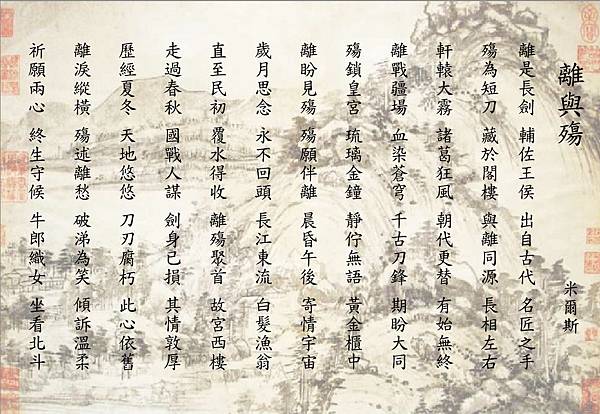 離與殤
米爾斯
離是長劍 輔佐王侯 出自古代 名匠之手
殤為短刀 藏於閣樓 與離同源 長相左右
軒轅大霧 諸葛狂風 朝代更替 有始無終
離戰疆場 血染蒼穹 千古刀鋒 期盼大同
殤鎖皇宮 琉璃金鐘 靜佇無語 黃金櫃中
離盼見殤 殤願伴離 晨昏午後 寄情宇宙
歲月思念 永不回頭 長江東流 白髮漁翁
直至民初 覆水得收 離殤聚首 故宮西樓
走過春秋 國戰人謀 劍身已損 其情敦厚
歷經夏冬 天地悠悠 刀刃腐朽 此心依舊
離淚縱橫 殤述離愁 破涕為笑 傾訴溫柔
祈願兩心 終生守候 牛郎織女 坐看北斗